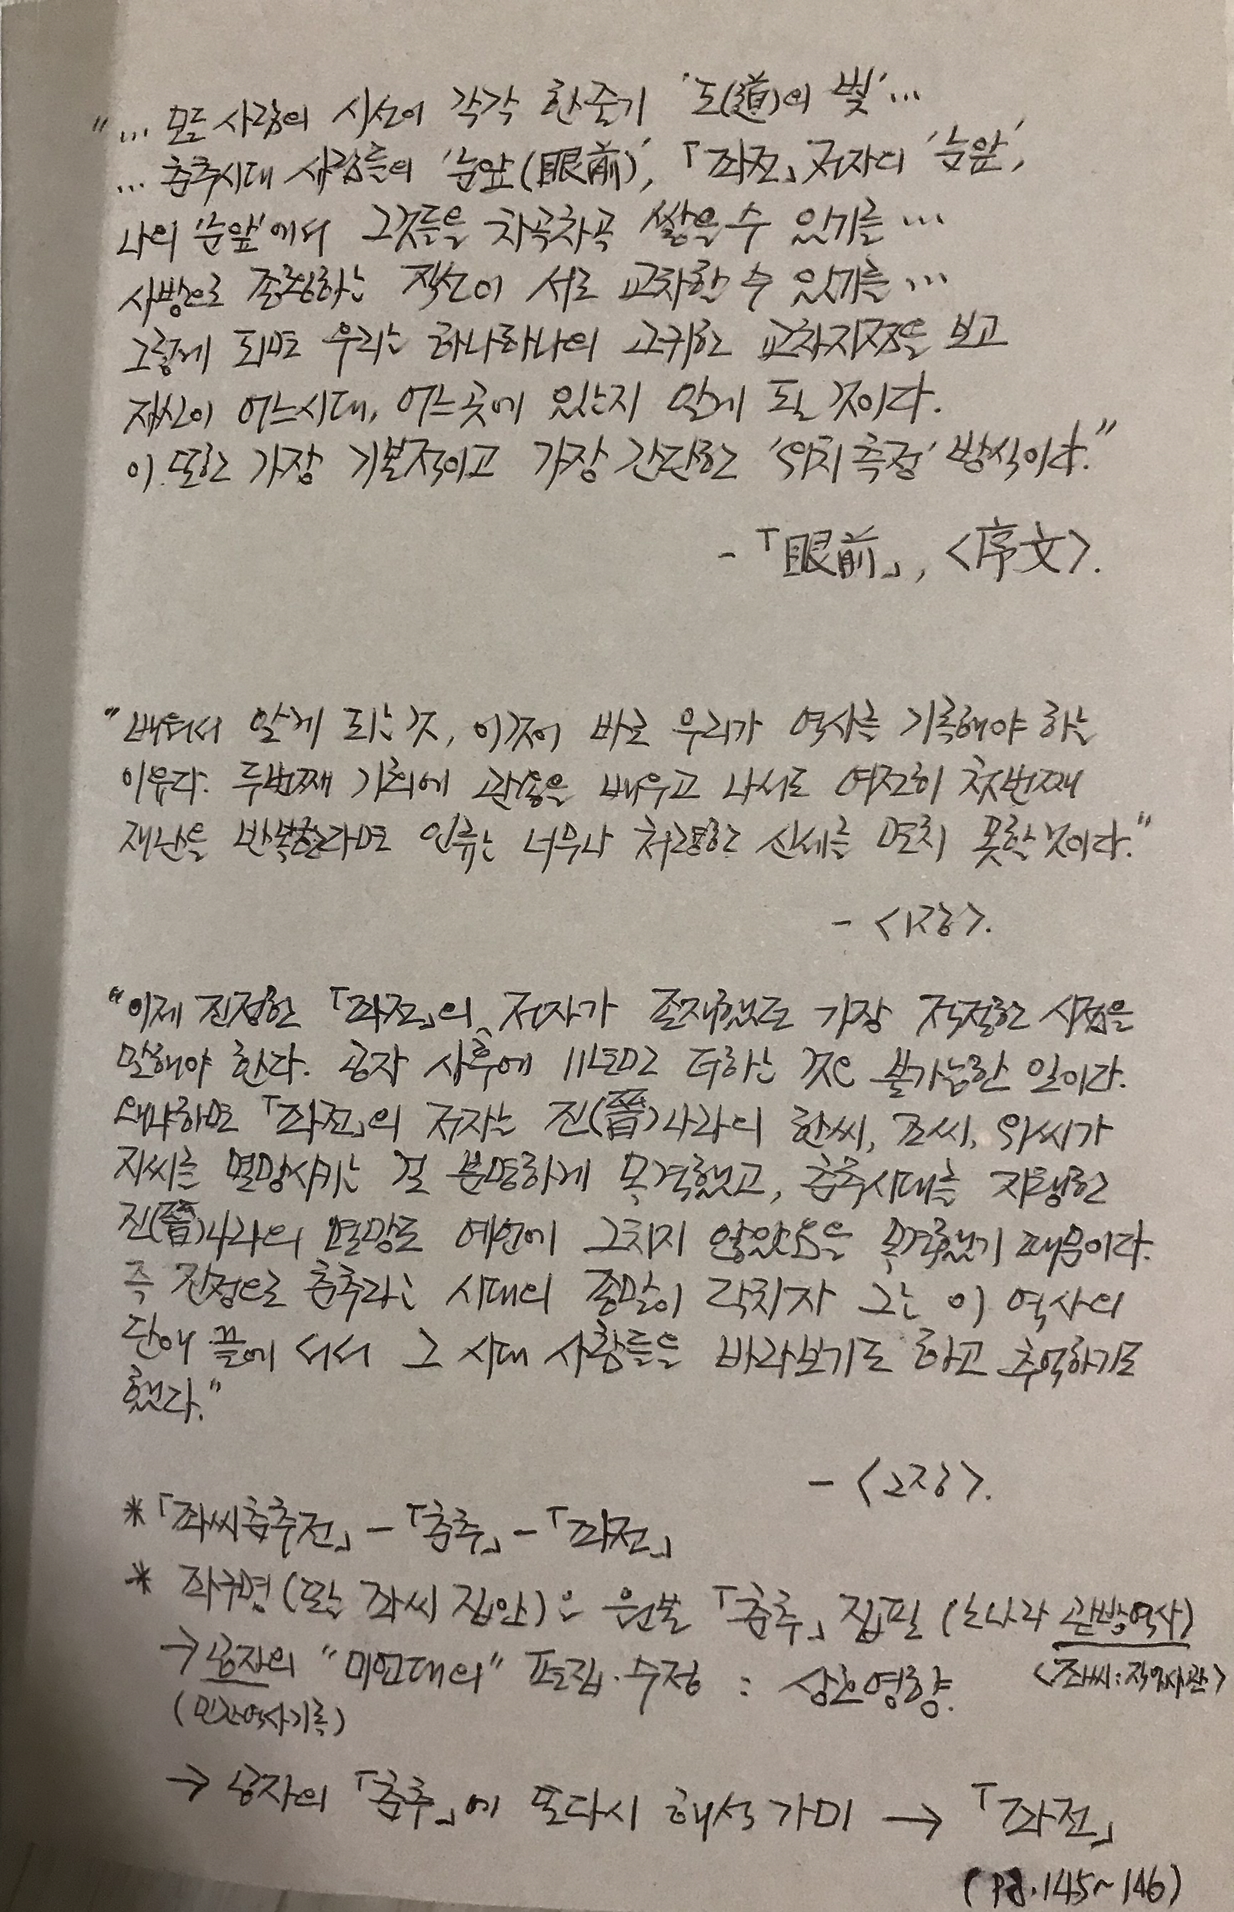 "… 모든 사람의 시선이 각각 한줄기 '도(道)의 빛'…
… 춘추시대 사람들의 '눈앞(眼前)', 「좌전」 저자의 '눈앞',
나의 '눈앞'에서 그것들을 차곡차곡 쌓을 수 있기를…
사방으로 종횡하는 직선이 서로 교차할 수 있기를…
그렇게 되면 우리는 하나하나의 고귀한 교차지점을 보고
자신이 어느시대, 어느곳에 있는지 알게 될 것이다.
이 또한 가장 기본적이고 가장 간단한 '위치 측정' 방식이다."
- 「眼前」, <序文>.
"배워서 알게 되는 것, 이것이 바로 우리가 역사를 기록해야 하는
이유다. 두번째 기회에 관용을 배우고 나서도 여전히 첫번째
재난을 반복한다면 인류는 너무나 처량한 신세를 면치 못할 것이다."
- <1장>.
"이제 진정한 「좌전」의 저자가 존재했던 가장 적절한 시점을
말해야 한다. 공자 사후에 11년만 더하는 것은 불가능한 일이다.
왜냐하면 「좌전」의 저자는 진(晉)나라의 한씨, 조씨, 위씨가
지씨를 멸망시키는 걸 분명하게 목격했고, 춘추시대를 지탱한
진(晉)나라의 멸망도 예언에 그치지 않았음을 목격했기 때문이다.
즉 진정으로 춘추라는 시대의 종말이 닥치자 그는 이 역사의
단애 끝에 서서 그 시대 사람들을 바라보기도 하고 추억하기도
했다."
- <2장>.
* 「좌씨춘추전」 - 「춘추」 - 「좌전」
* 좌구명 (또는 좌씨 집안)은 원본 「춘추」 집필 (노나라 관방역사)
→ 공자의 "미언대의" 편집·수정 : 상호영향. <좌씨:직업사관>
(민간역사기록)
→ 공자의 「춘추」에 또다시 해석 가미 → 「좌전」
(pg.145~146)